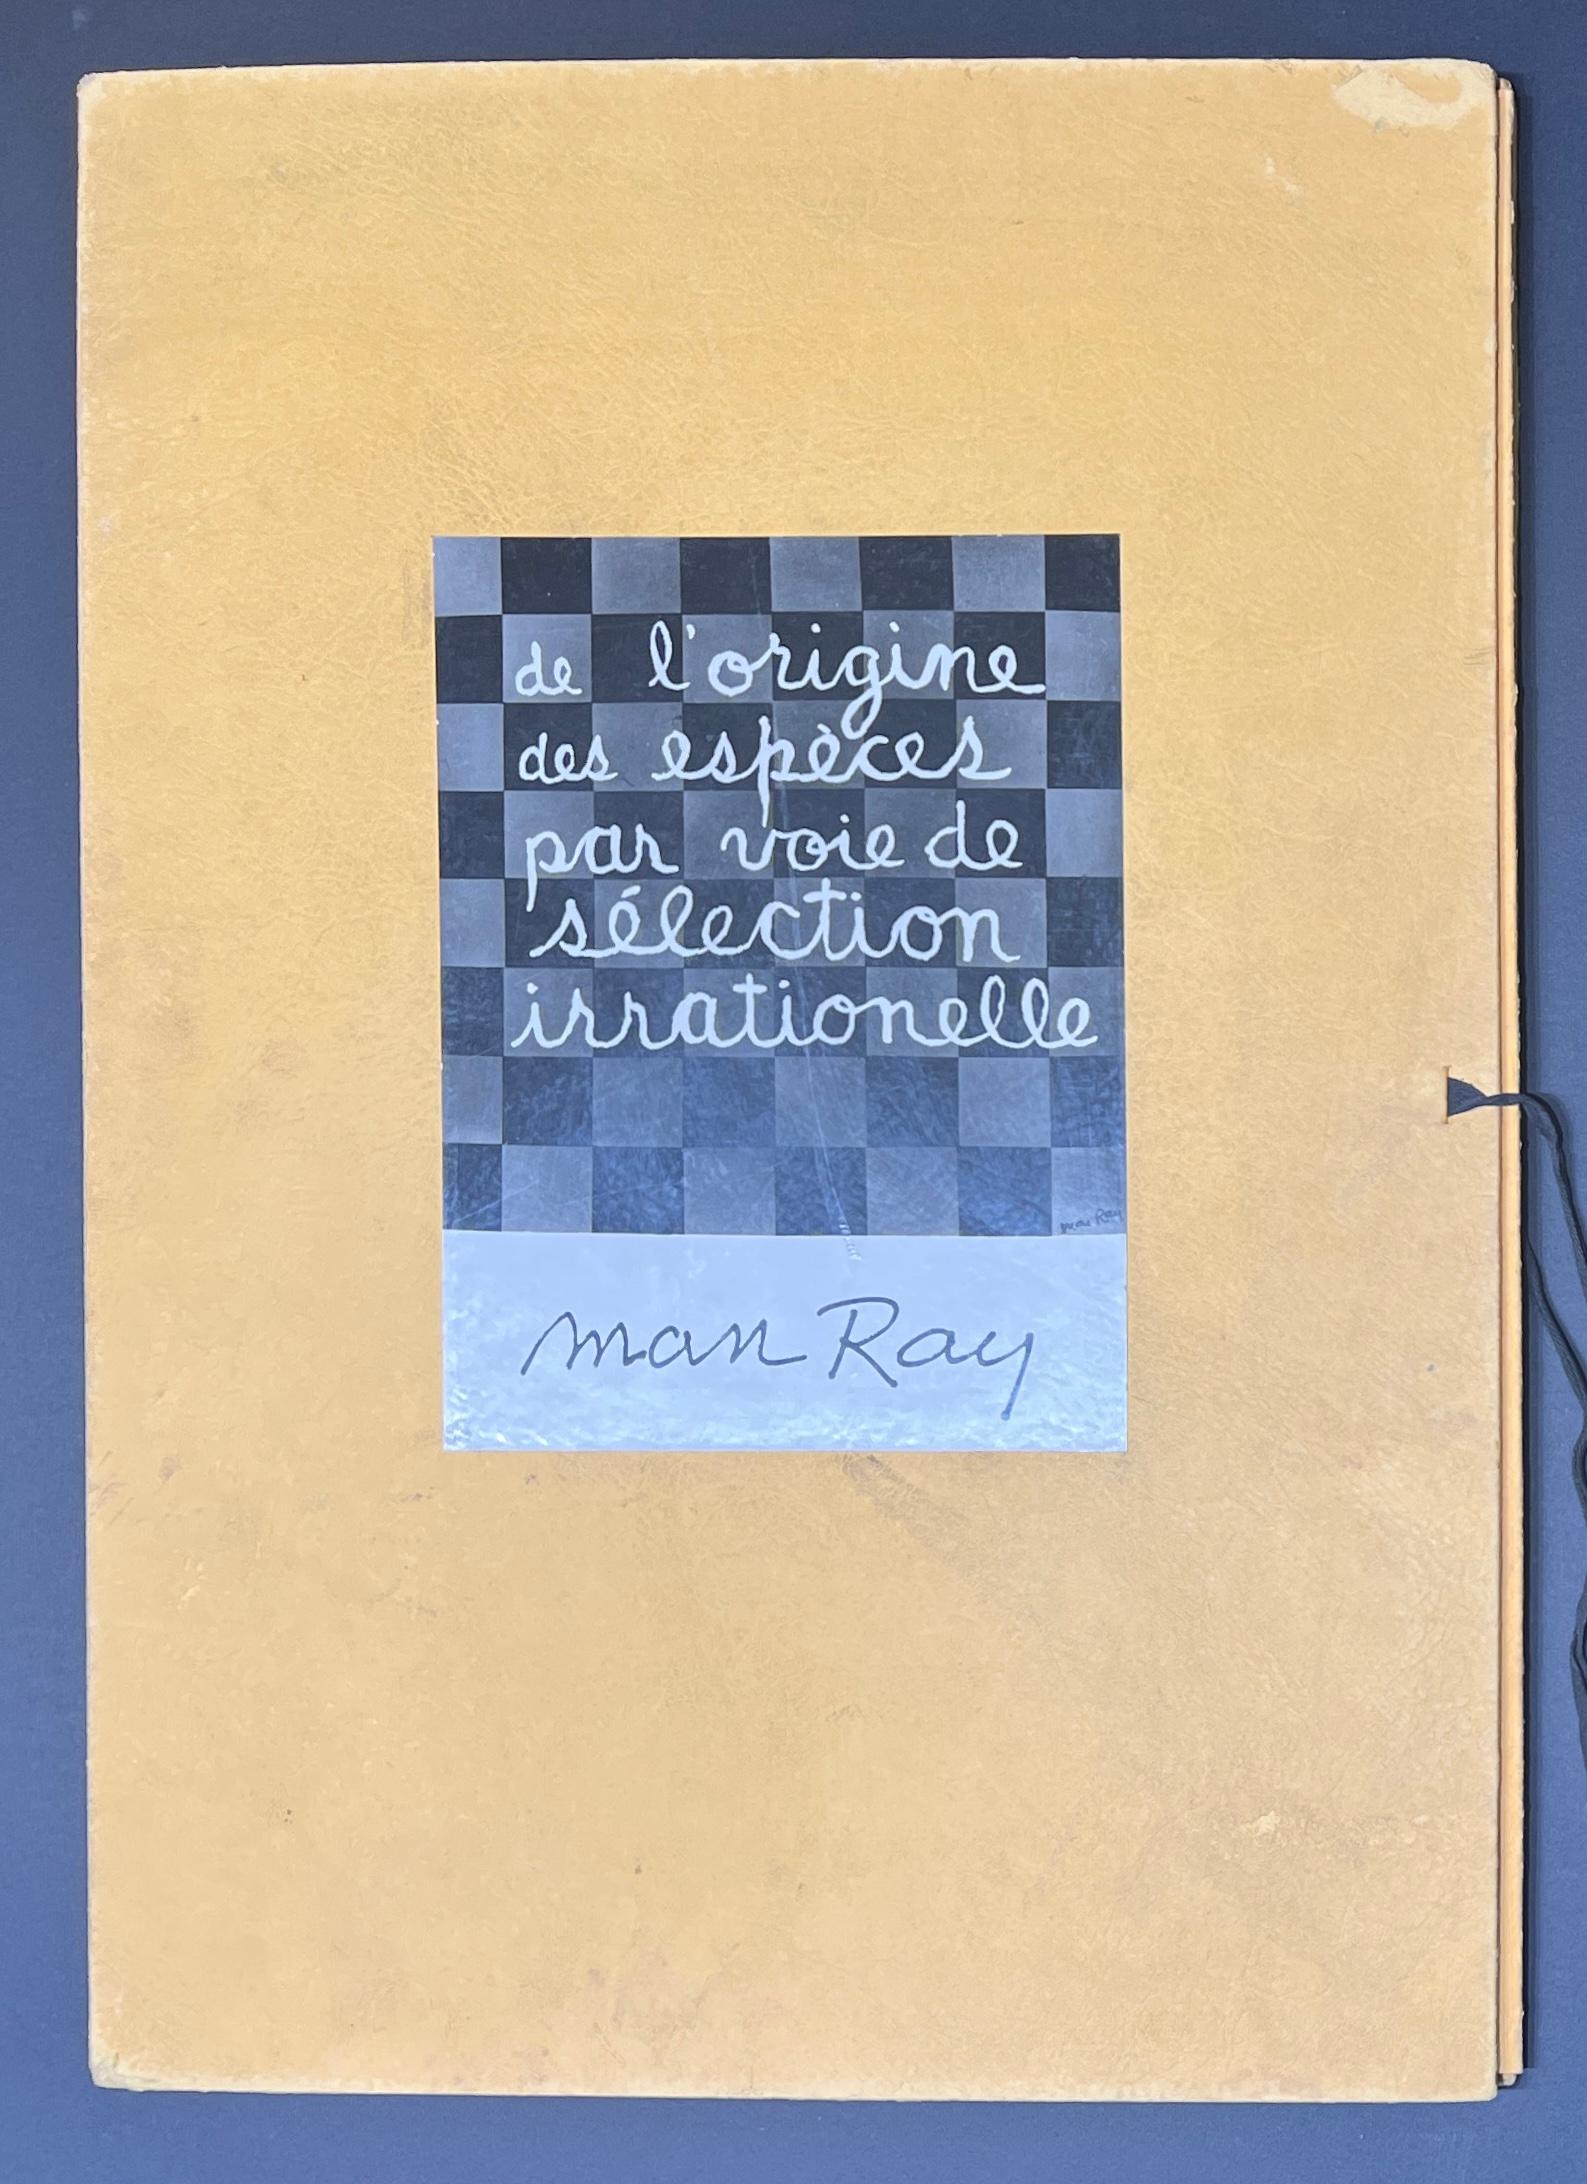 de l'origine
des espèces
par voie de
sélection
irrationelle
man Ray
man Ray